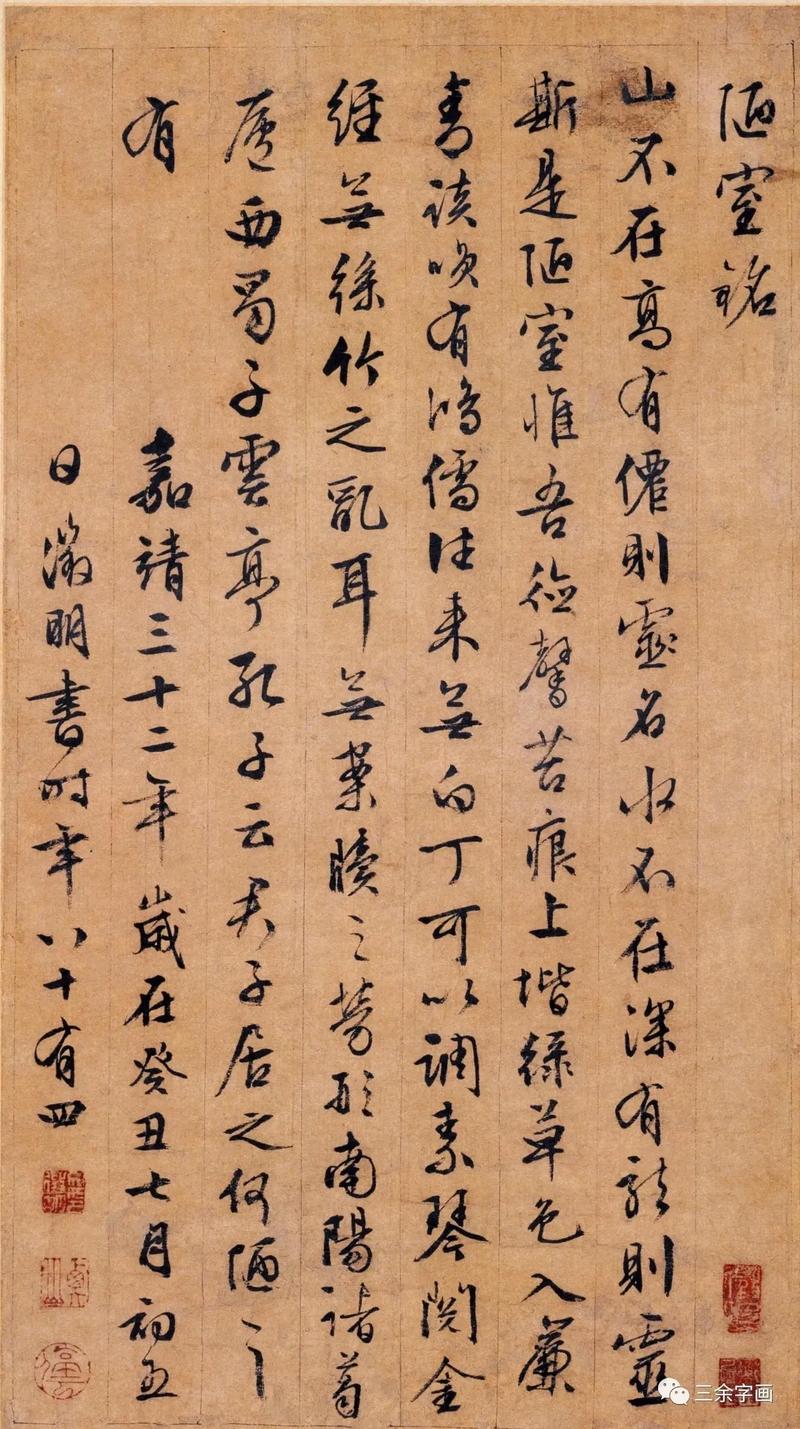 陋室銘
山不在高有僊則靈名水不在深有龍則靈
斯是陋室惟吾德馨苔痕上堦緑草色入簾
青談咲有鴻儒往来無白丁可以調素琴閱金
經無絲竹之乱耳無案牘之勞形南陽諸葛
廬西蜀子雲亭孔子云君子居之何陋之
有
嘉靖三十二年歲在癸丑七月初五
日徵明書時年八十有四
三余字画